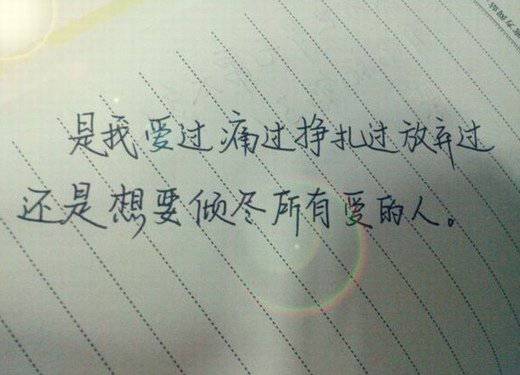 是我爱过痛过挣扎过放弃过
还是想要倾尽所有爱的人。